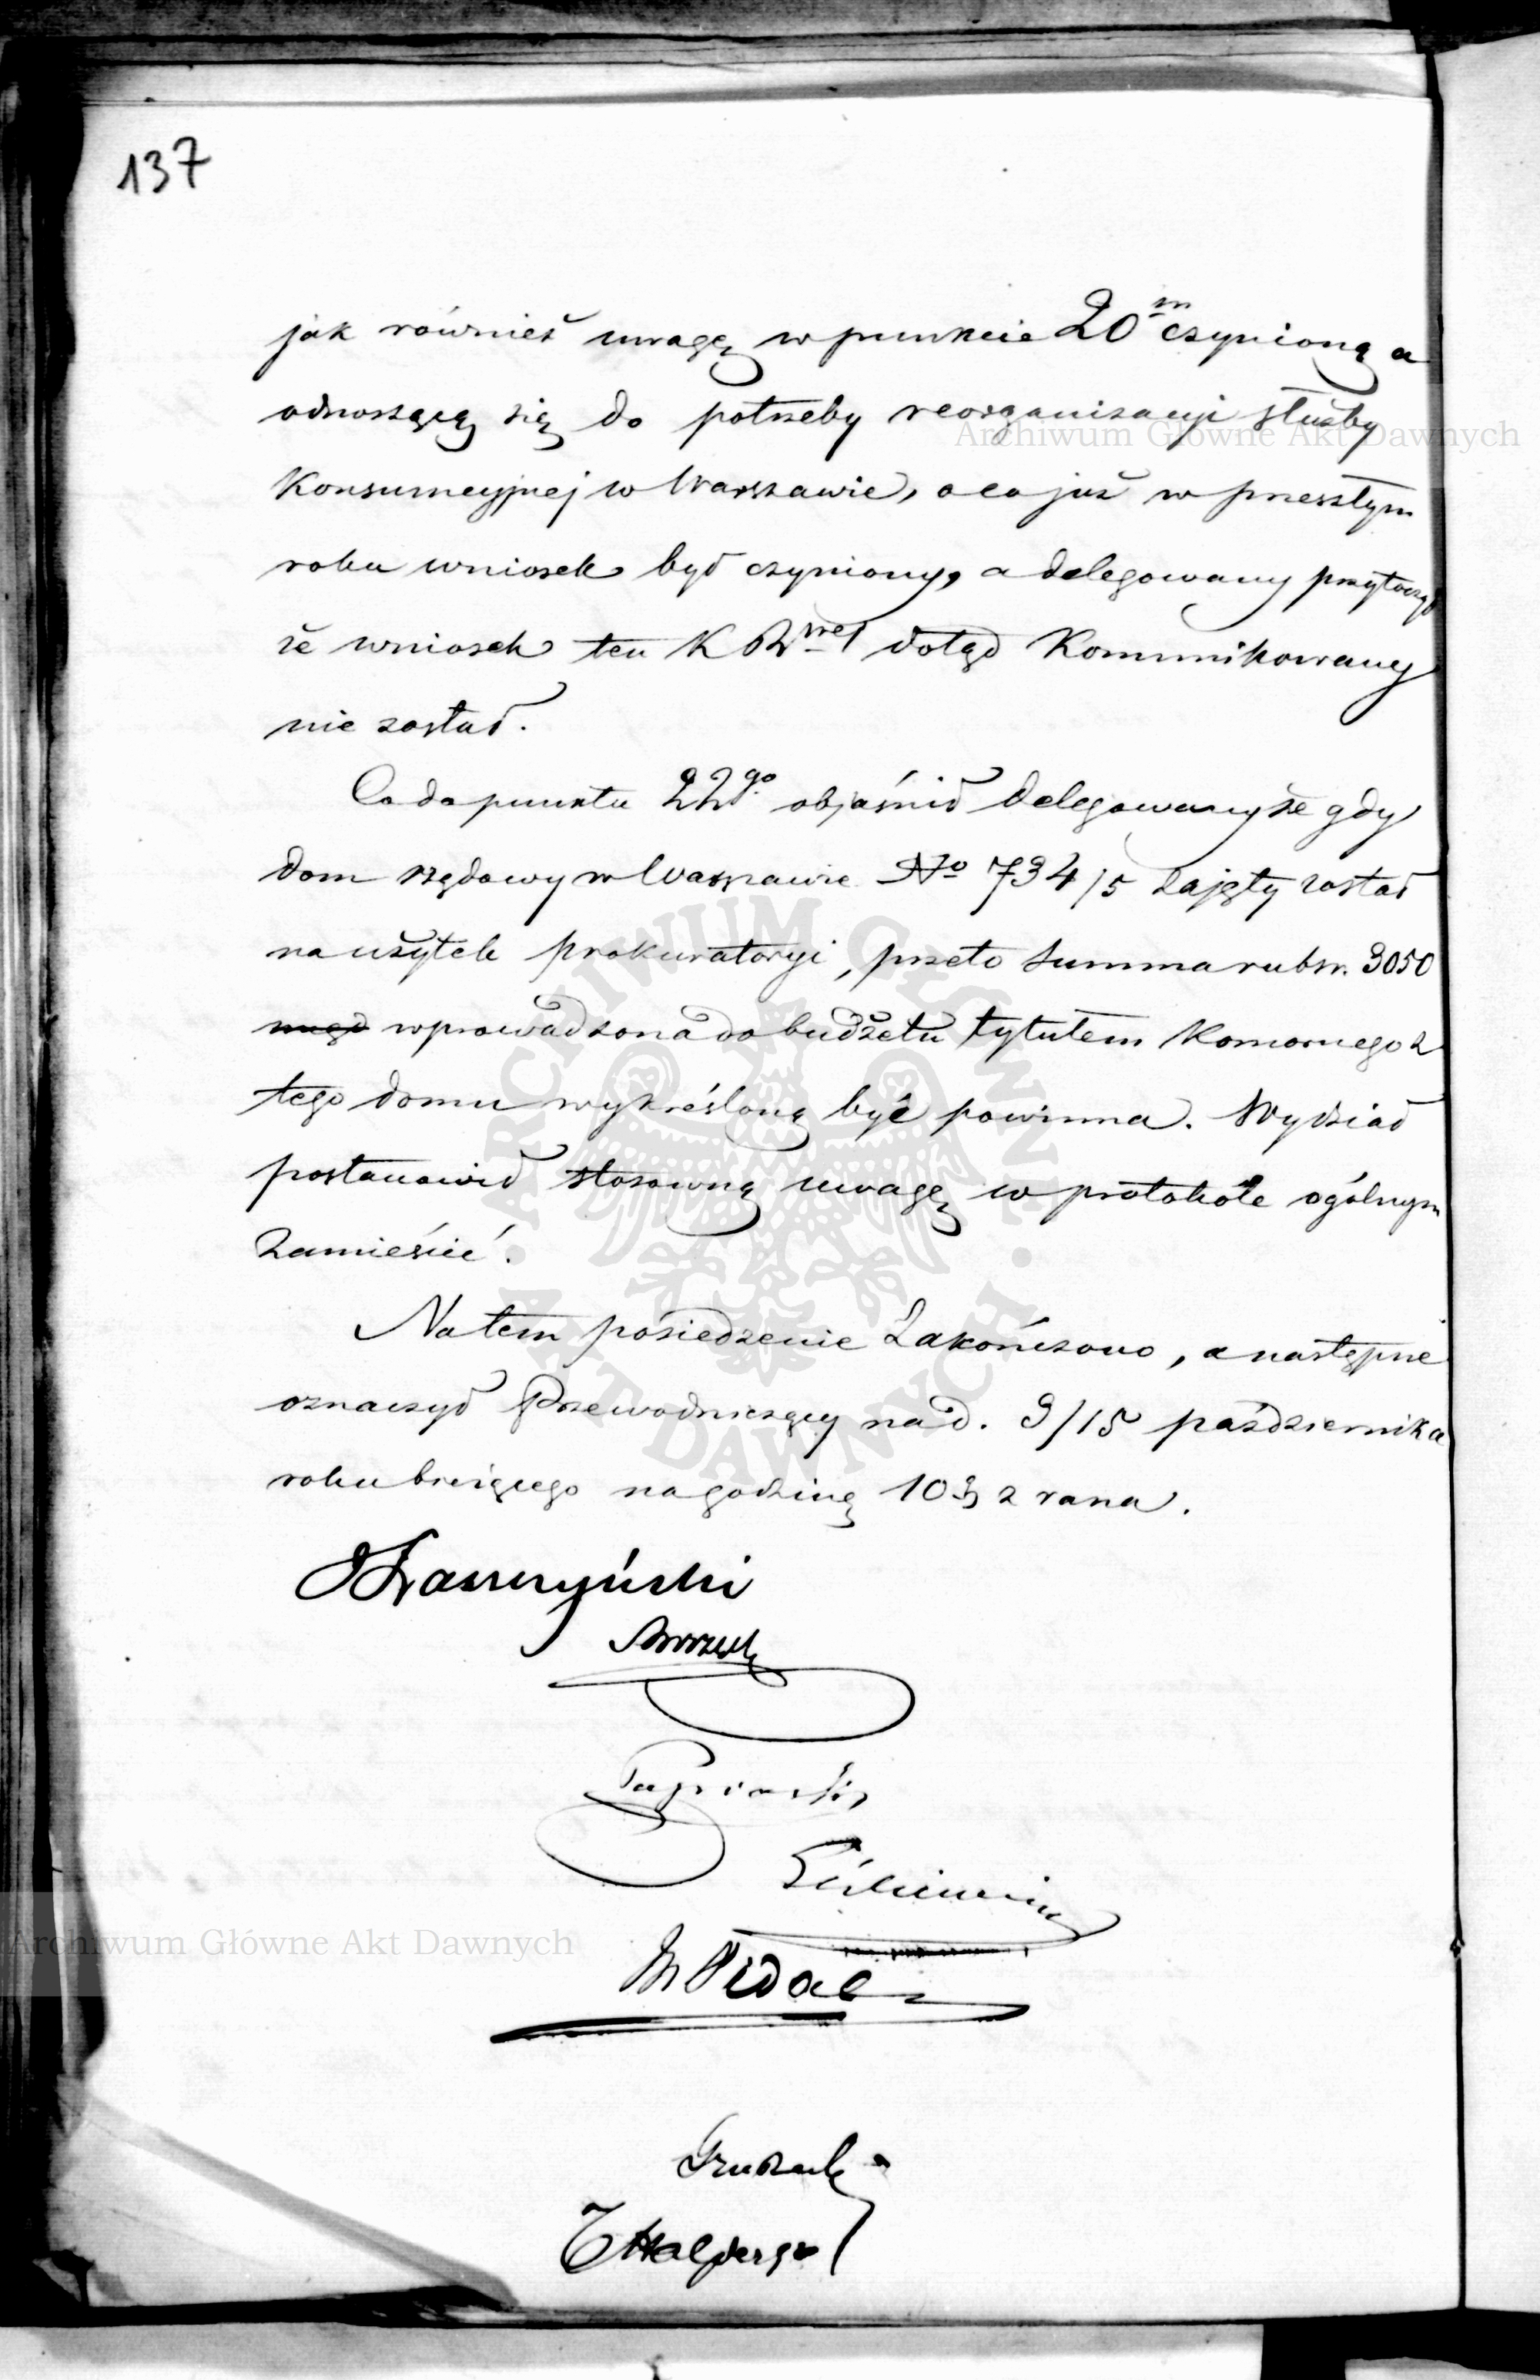 137
jak również uwagę w punkcie 20m czynioną a
odnoszącą się do potrzeby reorganizacyi służby
Konsumcyjnej w Warszawie, o co już w przeszłym
roku wniosek był czyniony, a delegowany przytoczył
że wniosek ten K dotąd Komunikowany
nie został.
Co do punktu 22go objaśnił delegowany że gdy
dom rządowy w Warszawie No 734/5 zajęty został
na użytek prokuratoryi, przeto summa rubsr. 3050
wprowadzona do budżetu tytułem Komornego z
tego domu wykreśloną być powinna. Wydział
postanowił stosowną uwagę w protokóle ogólnym
zamieścić.
Na tem posiedzenie zakończono, a następne
oznaczył Przewodniczący na d. 3/15 października
roku bieżącego na godzinę 10 z rana.
Łaszczyński
Halpert
Archiwum Główne Akt Dawnych
Archiwum Główne Akt Dawnych
ARCHIWUM GŁÓWNE AKT DAWNYCH